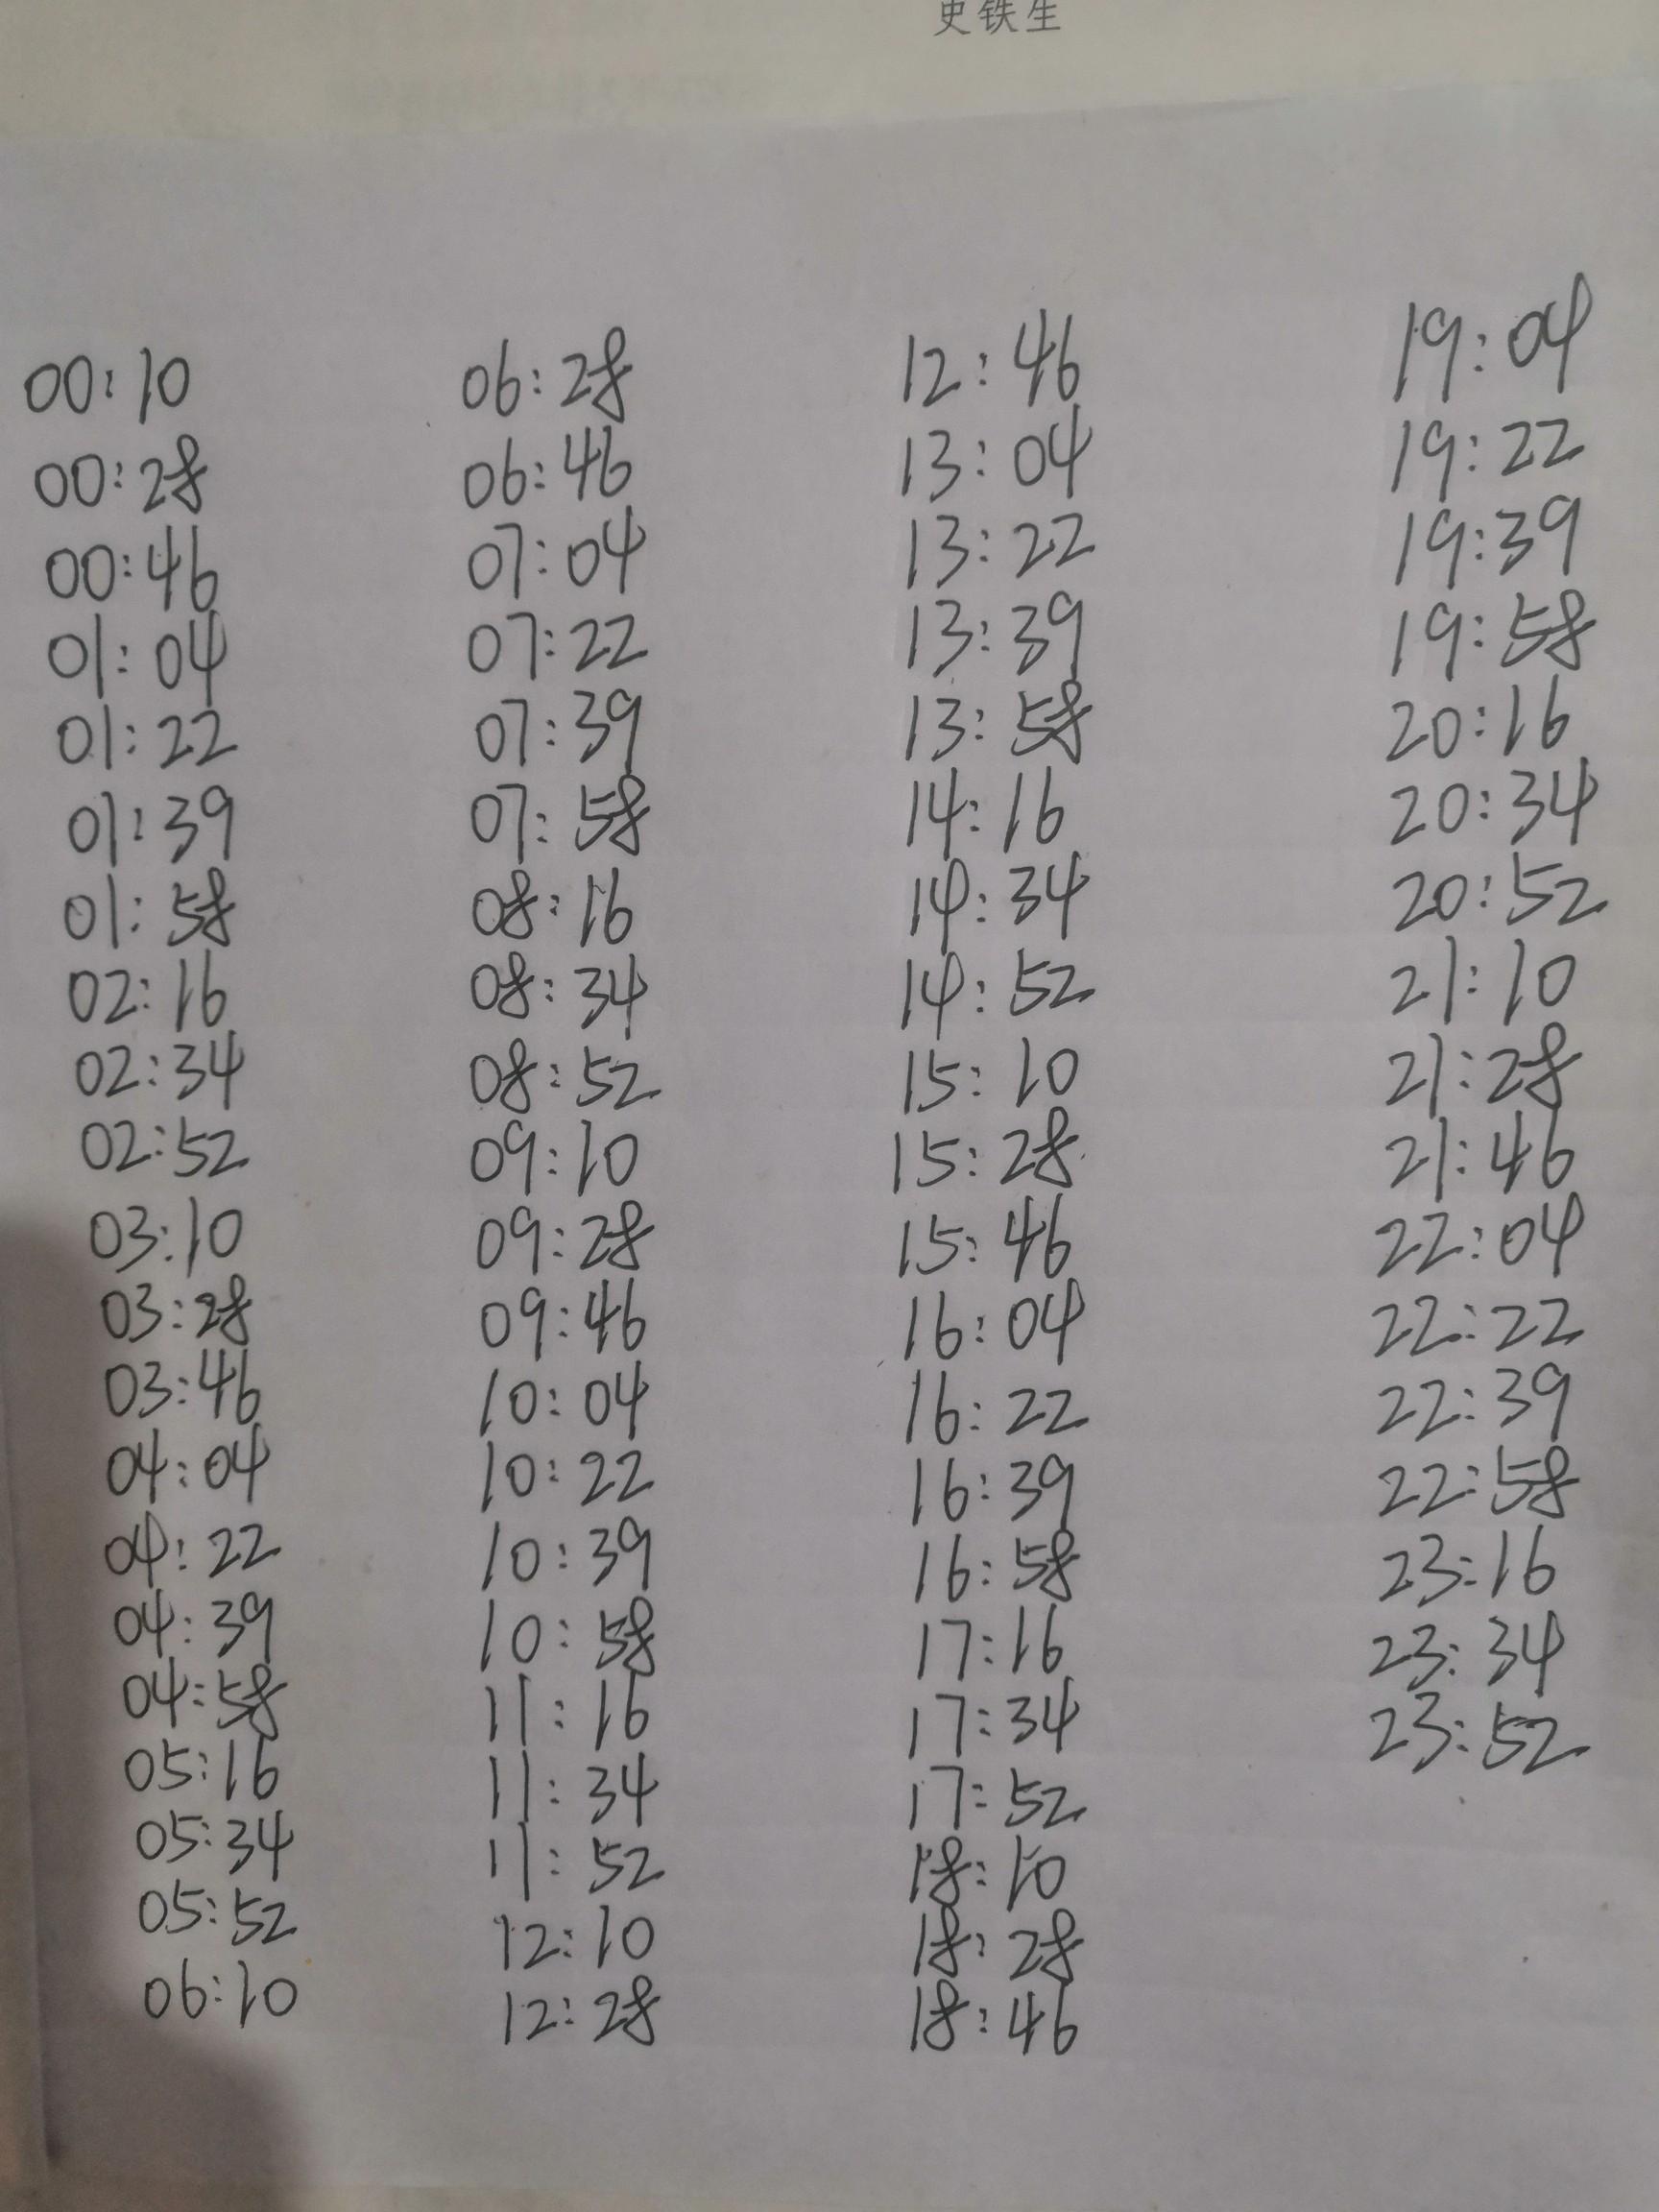 史铁生
00:10
00:28
00:46
01:04
01:22
01:39
01:58
02:16
02:34
02:52
03:10
03:28
03:46
04:04
04:22
04:39
04:58
05:16
05:34
05:52
06:10
06:28
06:46
07:04
07:22
07:39
07:58
08:16
08:34
08:52
09:10
09:28
09:46
10:04
10:22
10:39
10:58
11:16
11:34
11:52
12:10
12:28
12:46
13:04
13:22
13:39
13:58
14:16
14:34
14:52
15:10
15:28
15:46
16:04
16:22
16:39
16:58
17:16
17:34
17:52
18:10
18:28
18:46
19:04
19:22
19:39
19:58
20:16
20:34
20:52
21:10
21:28
21:46
22:04
22:22
22:39
22:58
23:16
23:34
23:52